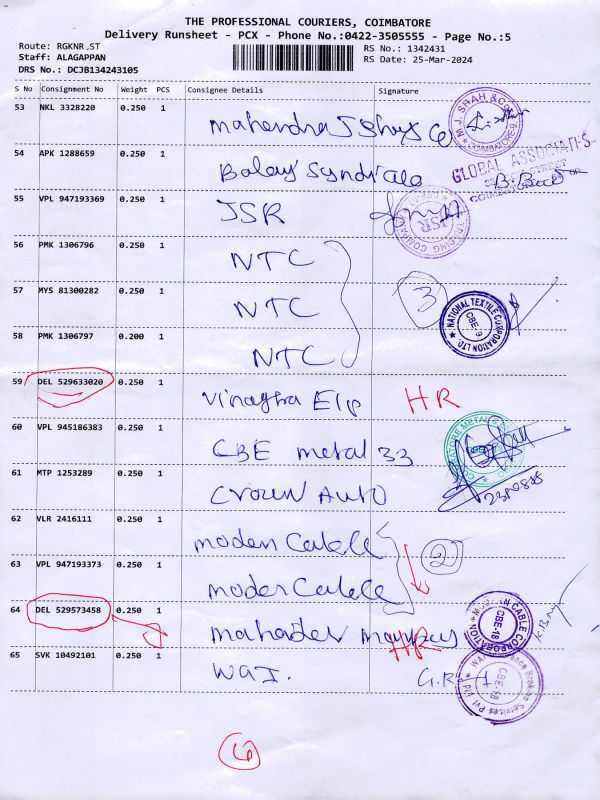 THE PROFESSIONAL COURIERS, COIMBATORE
Delivery Runsheet - PCX - Phone No.:0422-3505555 - Page No.:5
Route: RGKNR_ST
RS No.: 1342431
Staff: ALAGAPPAN
RS Date: 25-Mar-2024
DRS No.: DCJB134243105
S No Consignment No Weight PCS Consignee Details Signature
53 NKL 3328220 0.250 1 Mahendra J Co
M.J. SHAH & CO. COIMBATORE-9
54 APK 1288659 0.250 1 Balaji Syndicate
GLOBAL ASSOCIATES
55 VPL 947193369 0.250 1 JSR
JSR TRADING COMPANY
56 PMK 1306796 0.250 1 NTC
57 MYS 81300282 0.250 1 NTC
3
NATIONAL TEXTILE CORPORATION LTD. CBE-9
58 PMK 1306797 0.200 1 NTC
59 DEL 529633020 0.250 1 Vinagha Elp HR
60 VPL 945186383 0.250 1 CBE metal 33
COIMBATORE METAL
61 MTP 1253289 0.250 1 Crown Auto
62 VLR 2416111 0.250 1 moden Cable
2
63 VPL 947193373 0.250 1 moden Cable
64 DEL 529573458 0.250 1 mahadev HR
MODERN CABLE CORPORATION CBE-18
65 SVK 10492101 0.250 1 WAI.
Services Pvt Ltd CBE-18
6